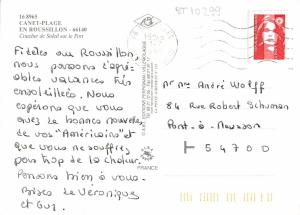 16 8965
CANET-PLAGE
EN ROUSSILLON - 66140
Coucher de Soleil sur le Port
ST 10299
Fidèles au Roussillon,
nous passons d'agré-
ables vacances très
ensoleillées. Nous
espérons que vous
avez de bonnes nouvelles
de vos "Américains" et
que vous ne souffrez
pas trop de la chaleur.
Pensons bien à vous.
Bises de Véronique
et Guy.
FRANCE
Mr Mme André Wolff
84 Rue Robert Schuman
Pont-à-Mousson
54700